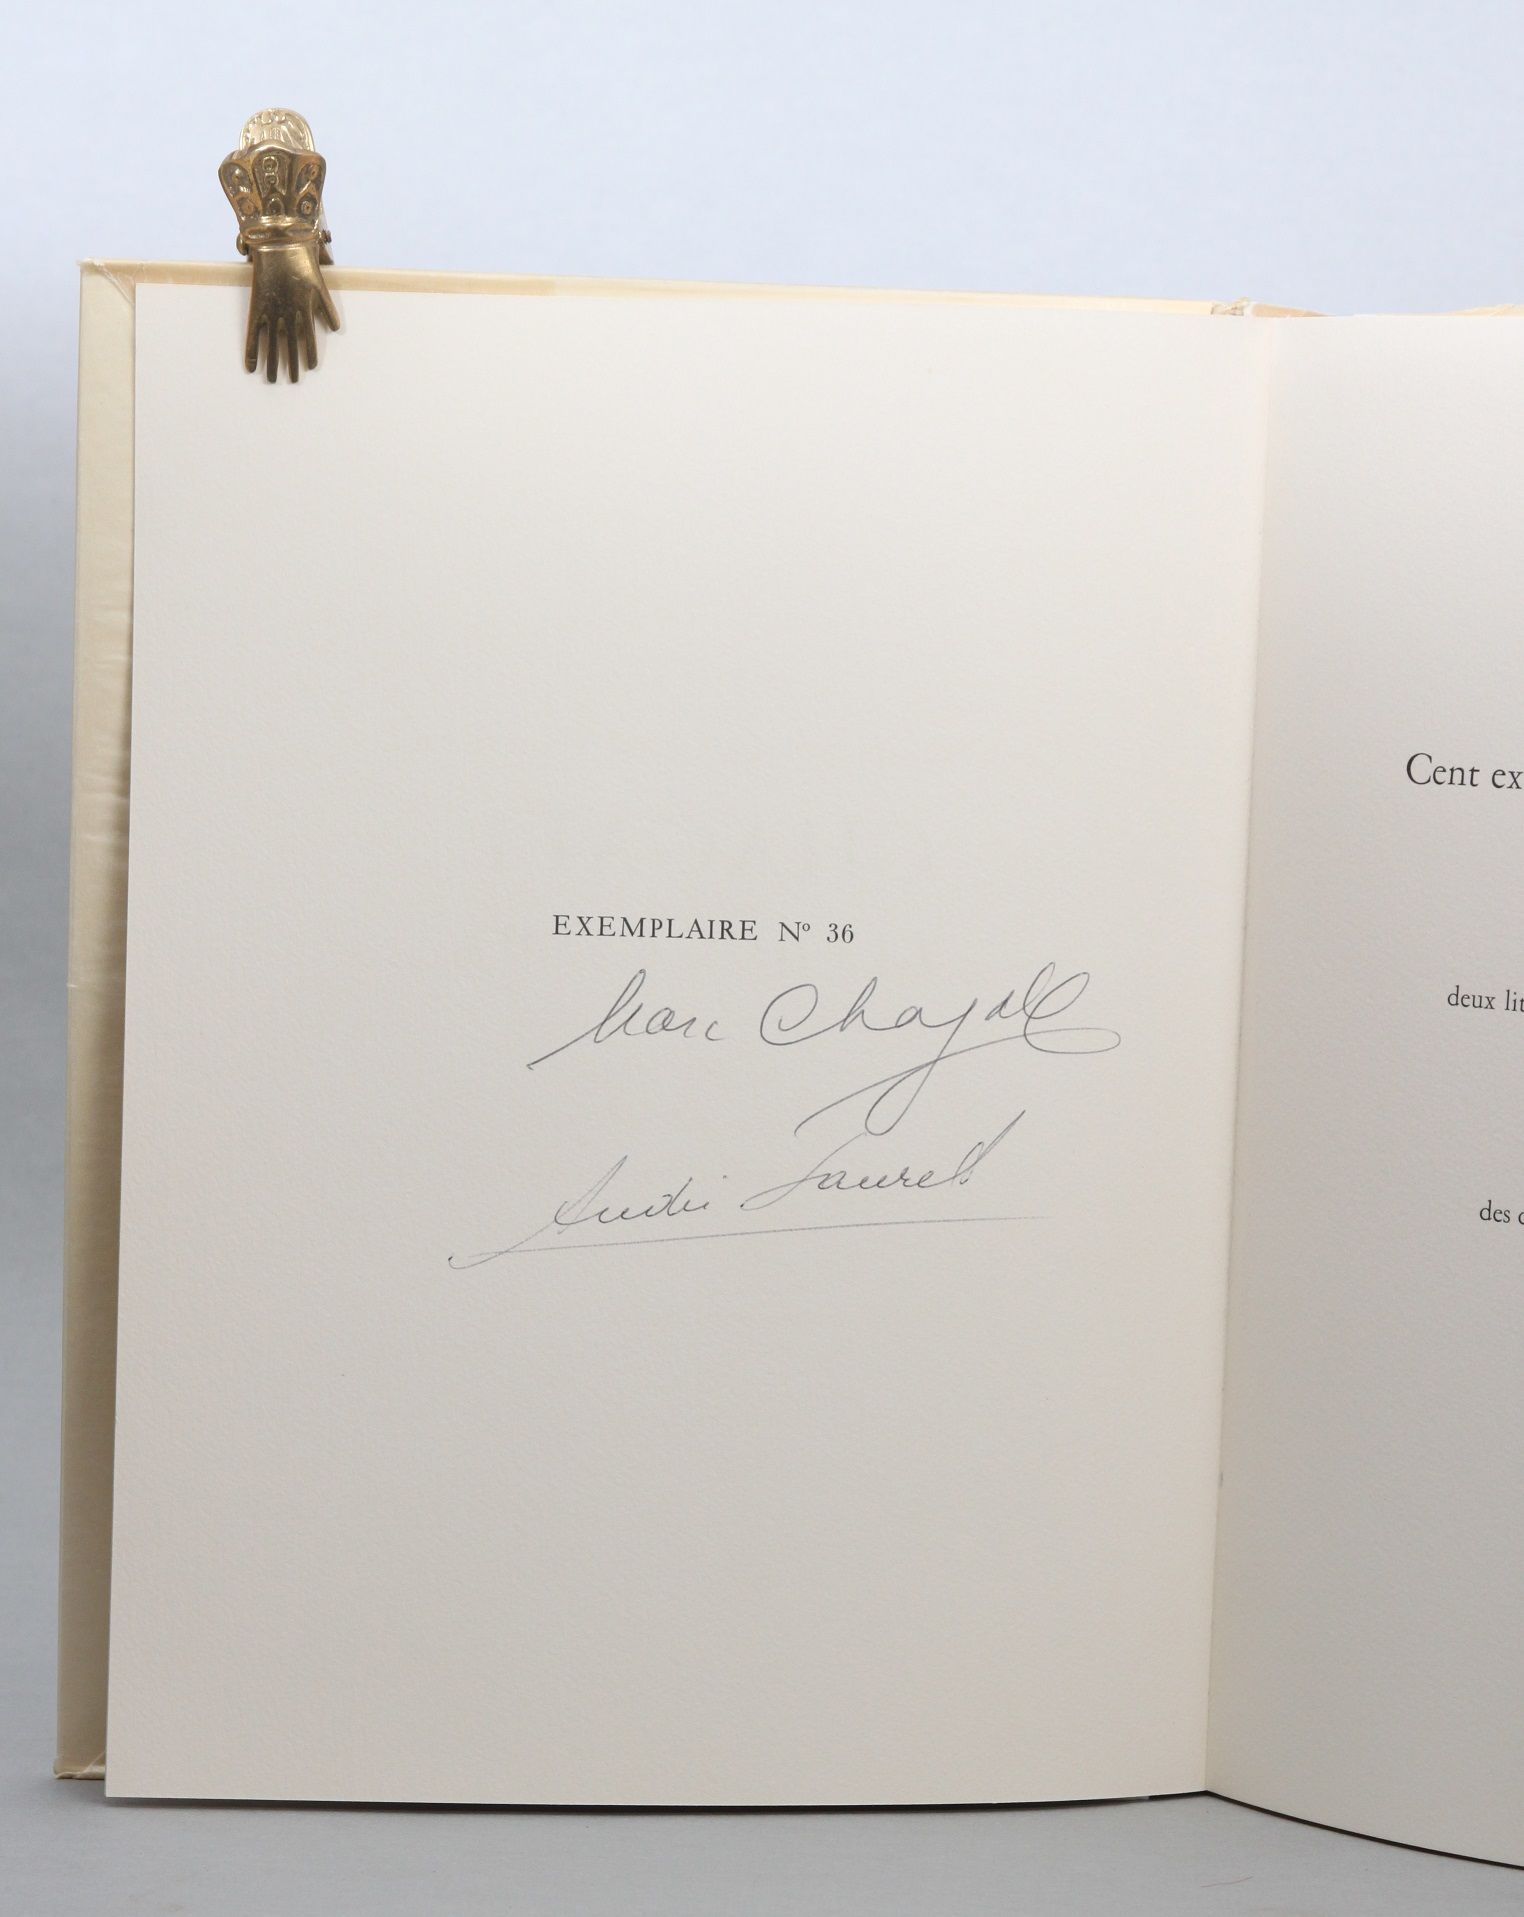 EXEMPLAIRE Nº 36
Marc Chagall
André Sauret
Cent ex
deux lit
des c